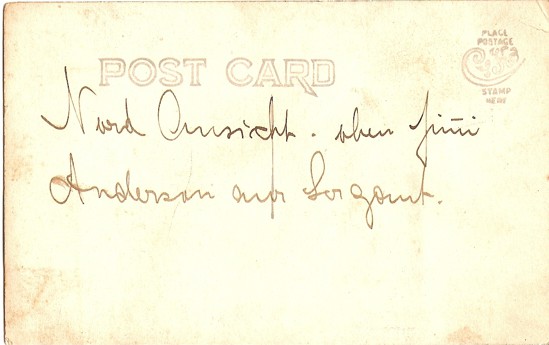 PLACE
POSTAGE
STAMP
HERE
POST CARD
Nord Ansicht. oben Jimi
Anderson